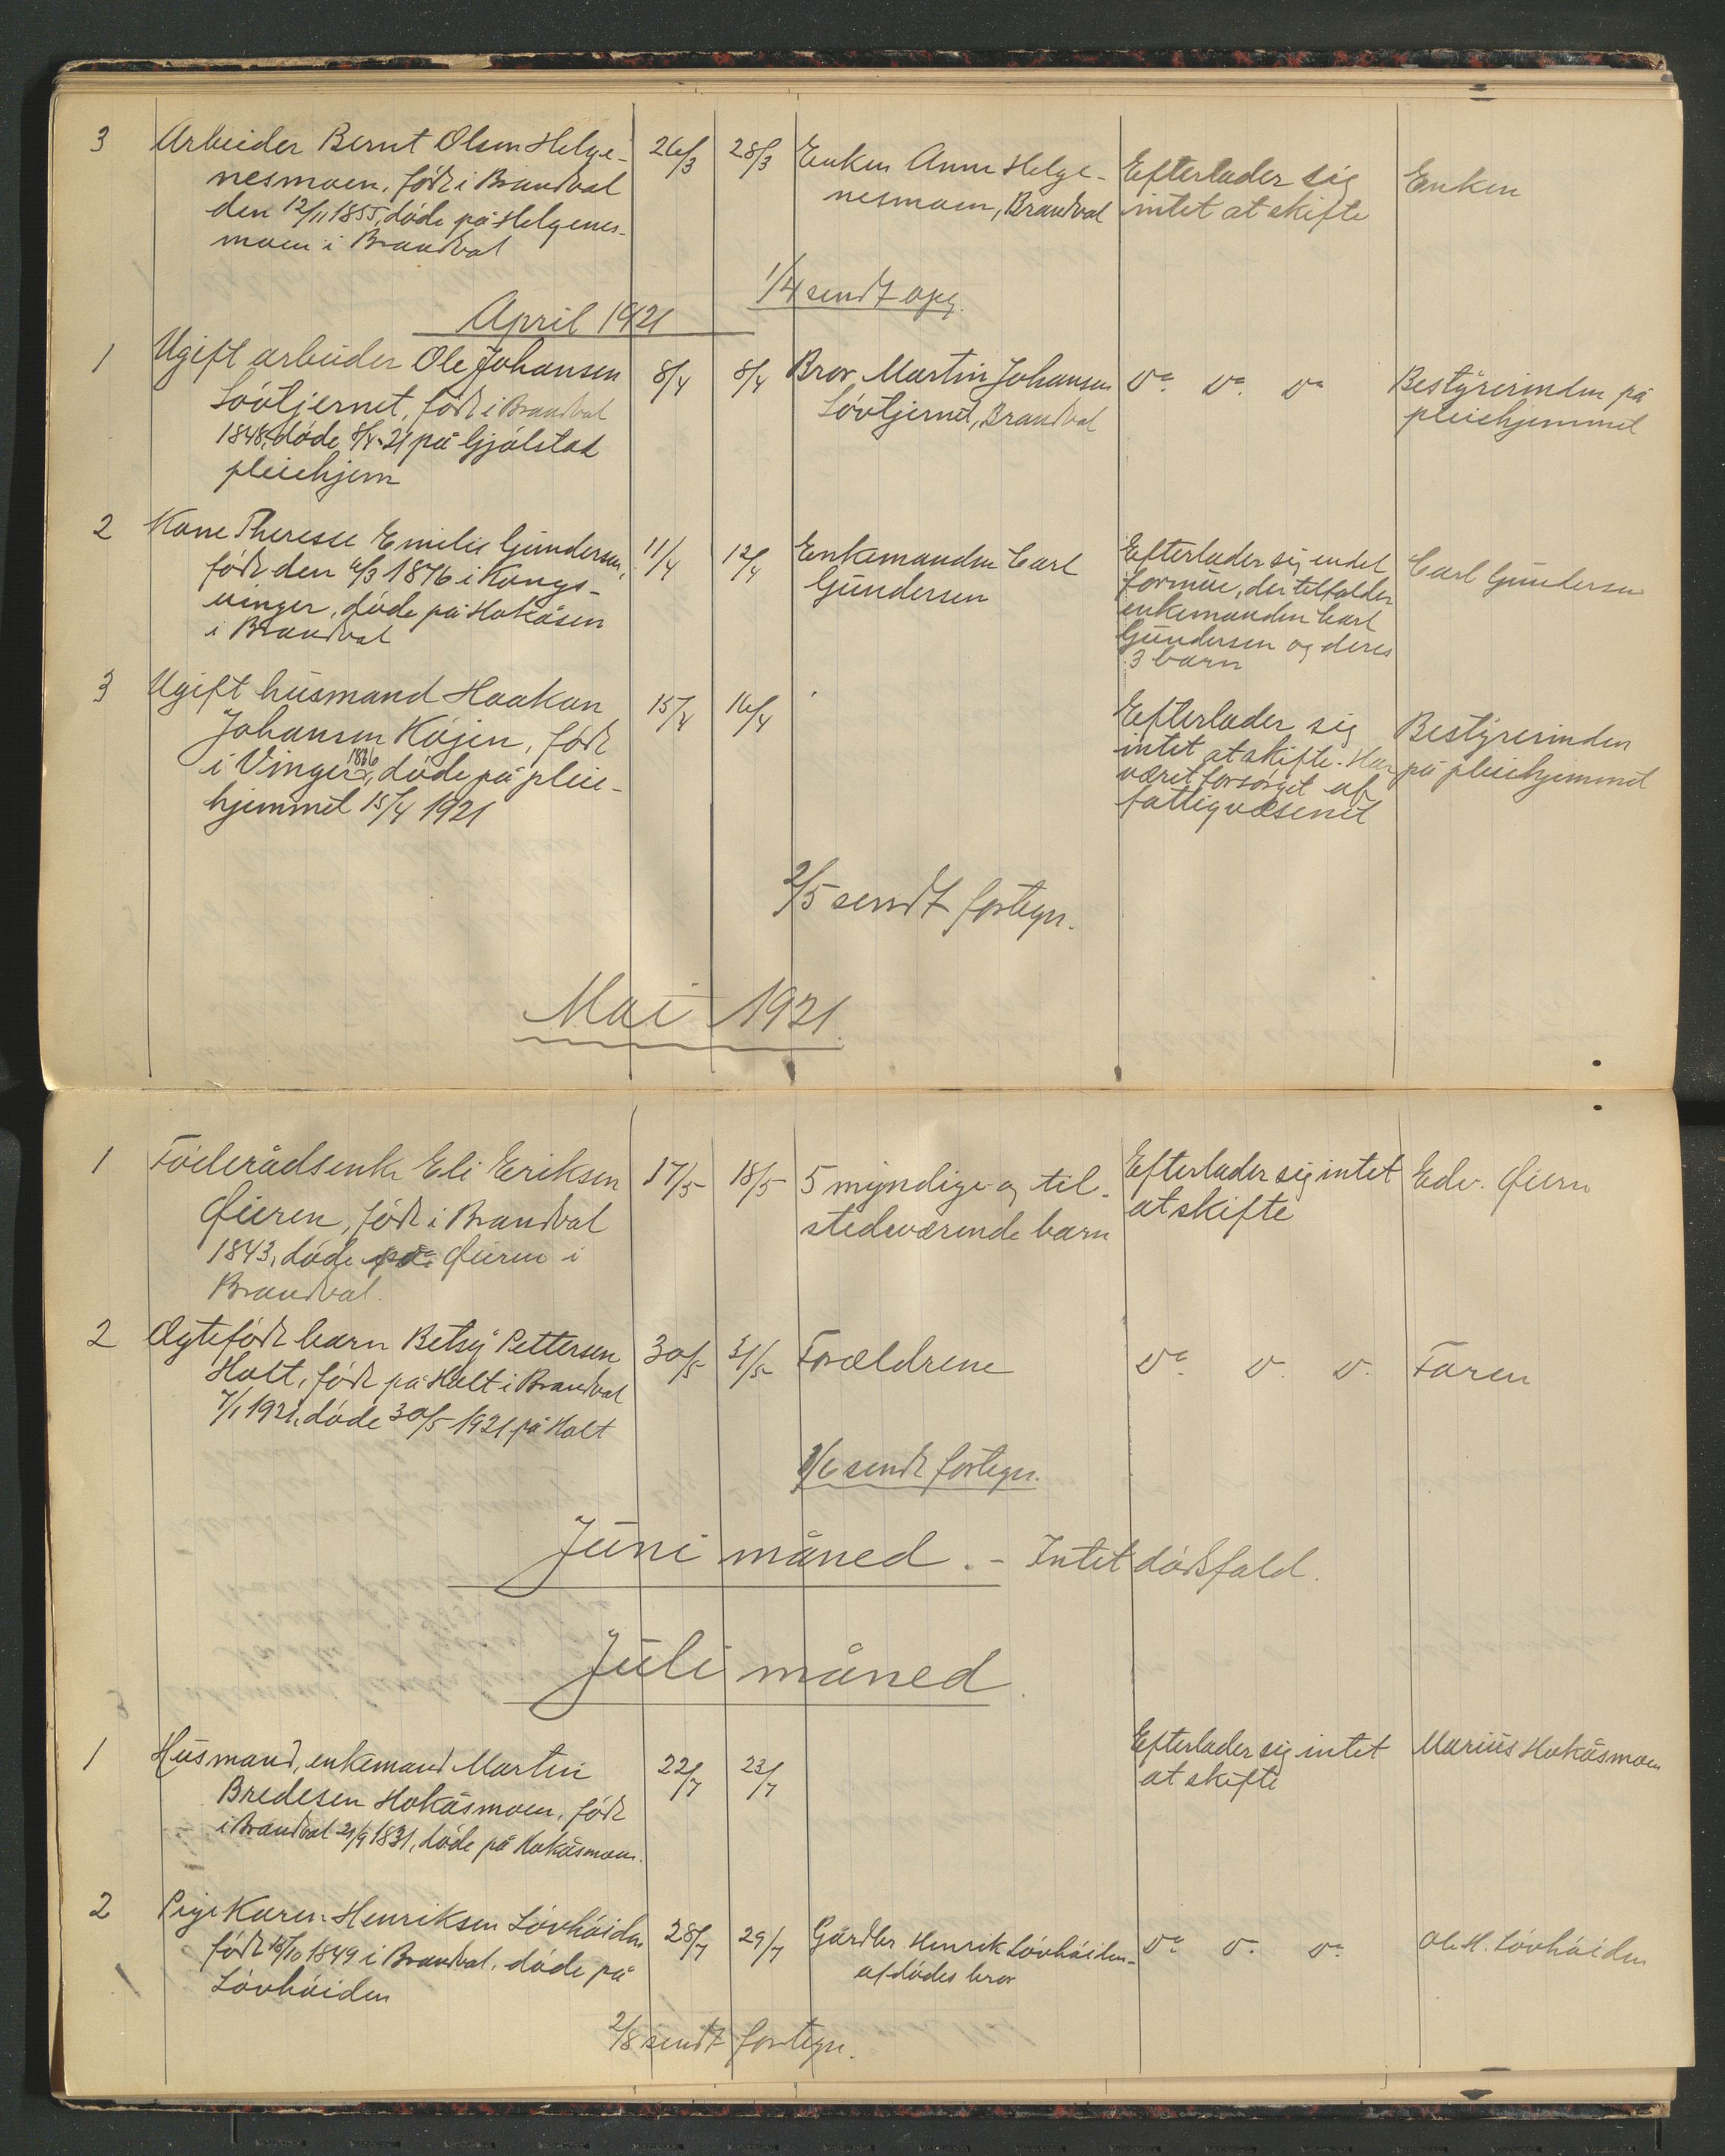 3 Arbeider Bernt Olsen Helge- 26/3 28/3 Enken Anne Helge- Efterlader sig Enken
nesmoen, født i Brandval nesmoen, Brandval intet at skifte
den 12/11 1855, døde på Helgenes-
moen i Brandval
1/4 sendt opg.
April 1921
1 Ugift arbeider Ole Johansen 8/4 8/4 Bror Martin Johansen Do. Do. Do Bestyrerinden på
Løvtjernet, født i Brandval Løvtjernet, Brandval pleiehjemmet
1848, døde 8/4-21 på Gjølstad
pleiehjem
2 Kone Therese Emilie Gundersen, 11/4 12/4 Enkemanden Carl Efterlader sig endel Carl Gundersen
født den 6/3 1876 i Kongs- Gundersen formue, der tilfalder
vinger, døde på Hokåsen enkemanden Carl
i Brandval Gundersen og deres
3 barn
3 Ugift husmand Haakon 15/4 16/4 Efterlader sig Bestyrerinden
Johansen Køjen, født intet at skifte. Har på pleiehjemmet
i Vinger 1836, døde på pleie- været forsørget af
hjemmet 15/4 1921 fattigvæsenet
2/5 sendt fortegn.
Mai 1921.
1 Føderådsenke Eli Eriksen 17/5 18/5 5 myndige og til- Efterlader sig intet Edv. Øieren
Øieren, født i Brandval stedeværende barn at skifte
1843, døde på Øieren i
Brandval.
2 Ægtefødt barn Betsy Pettersen 30/5 31/5 Forældrene Do. D. D. Faren
Holt, født på Holt i Brandval
7/1 1921, døde 30/5 1921 på Holt
1/6 sendt fortegn.
Juni måned. - Intet dødsfald.
Juli måned.
1 Husmand, enkemand Martin 22/7 23/7 Efterlader sig intet Marius Hokåsmoen
Bredesen Hokåsmoen, født at skifte
i Brandval 21/9 1831, døde på Hokåsmoen.
2 Pige Karen Henriksen Løvhøiden 28/7 29/7 Gårdbr. Henrik Løvhøiden- Do. D. Do. Ole H. Løvhøiden
født 16/10 1849 i Brandval, døde på afdødes bror
Løvhøiden
2/8 sendt fortegn.